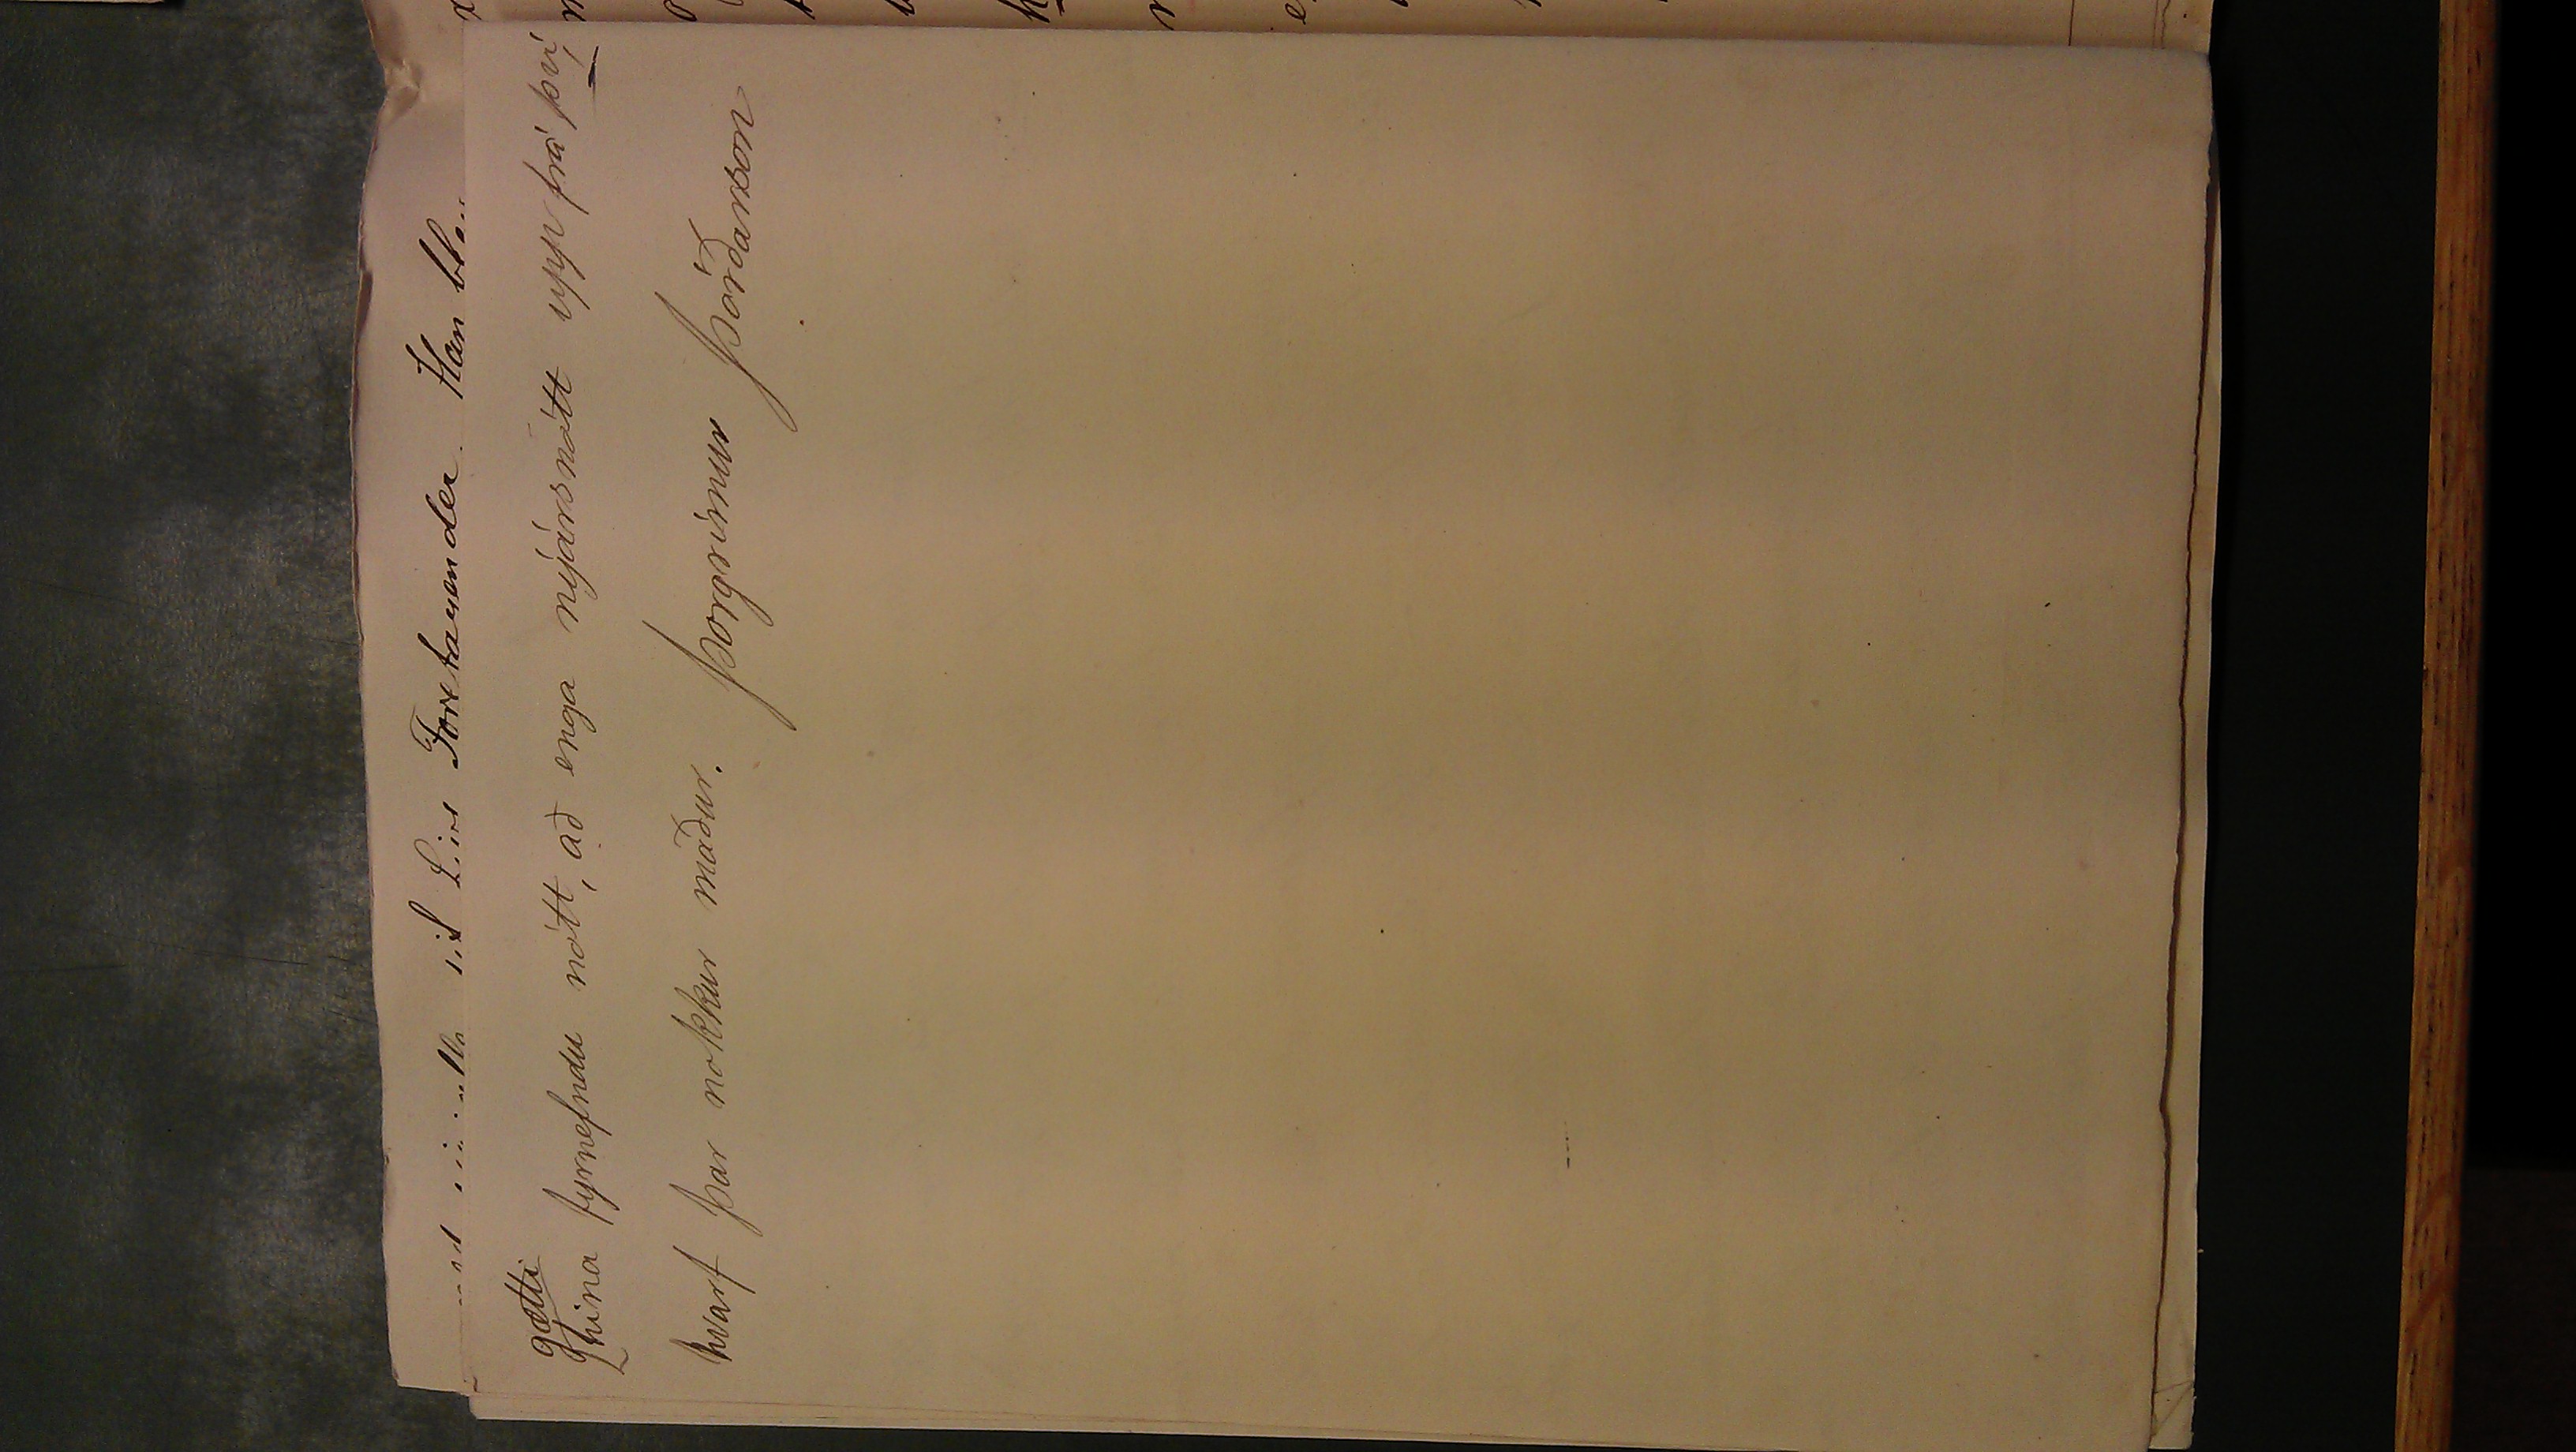 Foretagender. Han
gætti
hina fyrnefndu nótt, að enga nýjársnátt upp frá því
hvarf þar nokkur maður. Þorgrímur Þórðarson